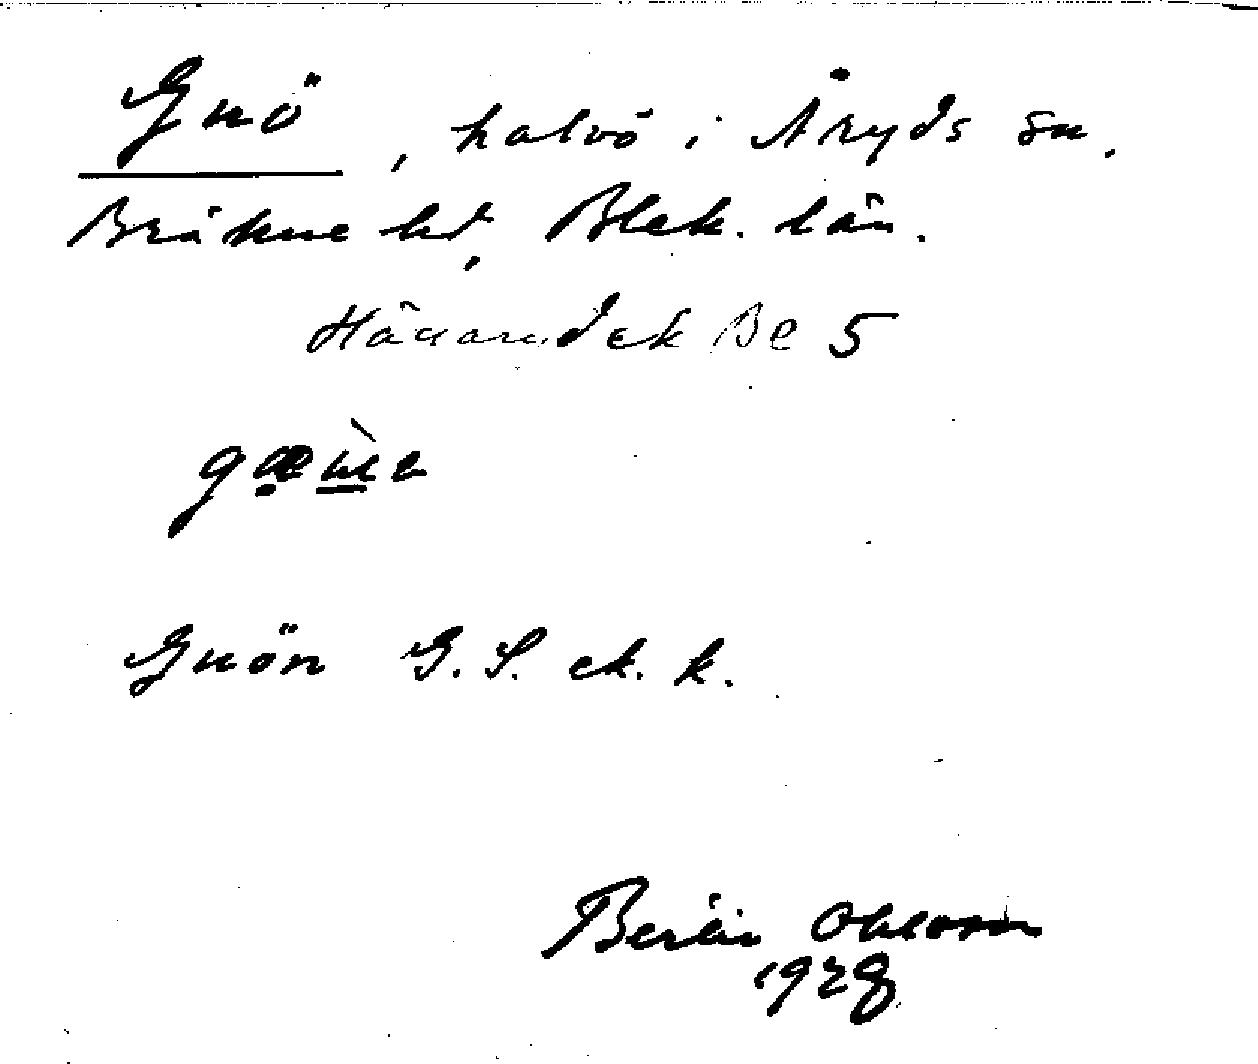 Gnö, halvö i Åryds sn.
Bräkne hd, Blek. län.
Häradsek Bl 5
Gnön G.S. ek. k.
Bertil Ohlsson
1928